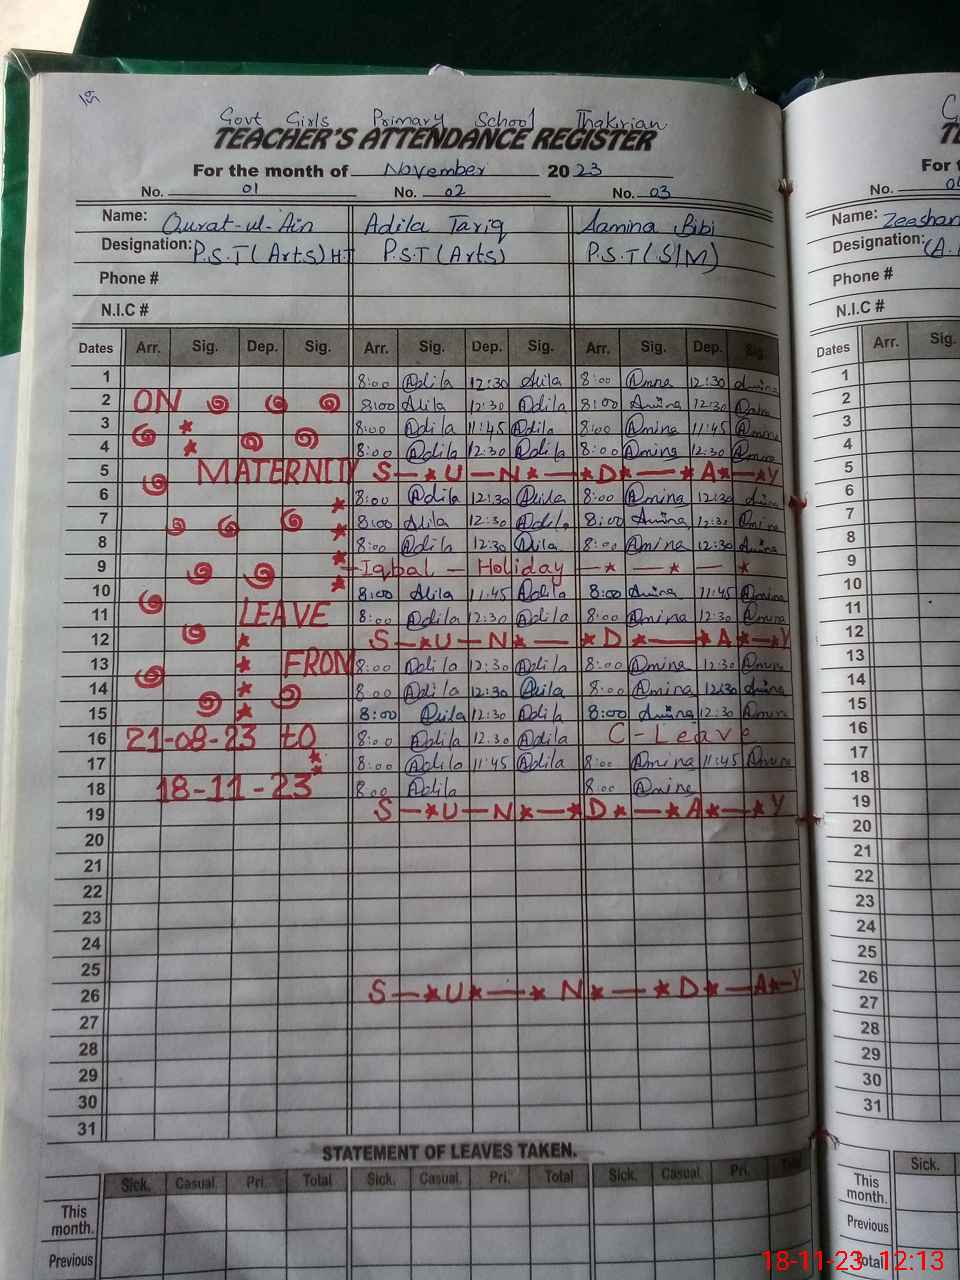 Govt Girls Primary School Thakirian
TEACHER'S ATTENDANCE REGISTER
For the month of November 2023
No. 01 No. 02 No. 03
Name: Qurat-ul-Ain Adila Tariq Samina Bibi
Designation: P.S.T (Arts) H.T P.S.T (Arts) P.S.T (S/M)
Phone #
N.I.C #
Dates Arr. Sig. Dep. Sig. Arr. Sig. Dep. Sig. Arr. Sig. Dep. Sig.
1 8:00 Adila 12:30 Adila 8:00 Amina 12:30 Amina
2 ON 8:00 Adila 12:30 Adila 8:00 Amina 12:30 Amina
3 8:00 Adila 11:45 Adila 8:00 Amina 11:45 Amina
4 8:00 Adila 12:30 Adila 8:00 Amina 12:30 Amina
5 MATERNITY S U N D A Y
6 8:00 Adila 12:30 Adila 8:00 Amina 12:30 Amina
7 8:00 Adila 12:30 Adila 8:00 Amina 12:30 Amina
8 8:00 Adila 12:30 Adila 8:00 Amina 12:30 Amina
9 - Iqbal - Holiday
10 8:00 Adila 11:45 Adila 8:00 Amina 11:45 Amina
11 LEAVE 8:00 Adila 12:30 Adila 8:00 Amina 12:30 Amina
12 S U N D A Y
13 FROM 8:00 Adila 12:30 Adila 8:00 Amina 12:30 Amina
14 8:00 Adila 12:30 Adila 8:00 Amina 12:30 Amina
15 8:00 Adila 12:30 Adila 8:00 Amina 12:30 Amina
16 21-08-23 to 8:00 Adila 12:30 Adila C-Leave
17 8:00 Adila 11:45 Adila 8:00 Amina 11:45 Amina
18 18-11-23 8:00 Adila 8:00 Amina
19 S U N D A Y
20
21
22
23
24
25
26 S U N D A Y
27
28
29
30
31
STATEMENT OF LEAVES TAKEN.
Sick. Casual. Pri. Total Sick. Casual. Pri. Total Sick. Casual. Pri. Total
This
month.
Previous
For t
No. 0
Name: Zeeshan
Designation: (A.
Phone #
N.I.C #
Dates Arr. Sig.
1
2
3
4
5
6
7
8
9
10
11
12
13
14
15
16
17
18
19
20
21
22
23
24
25
26
27
28
29
30
31
Sick.
This
month.
Previous
Total
18-11-23 12:13